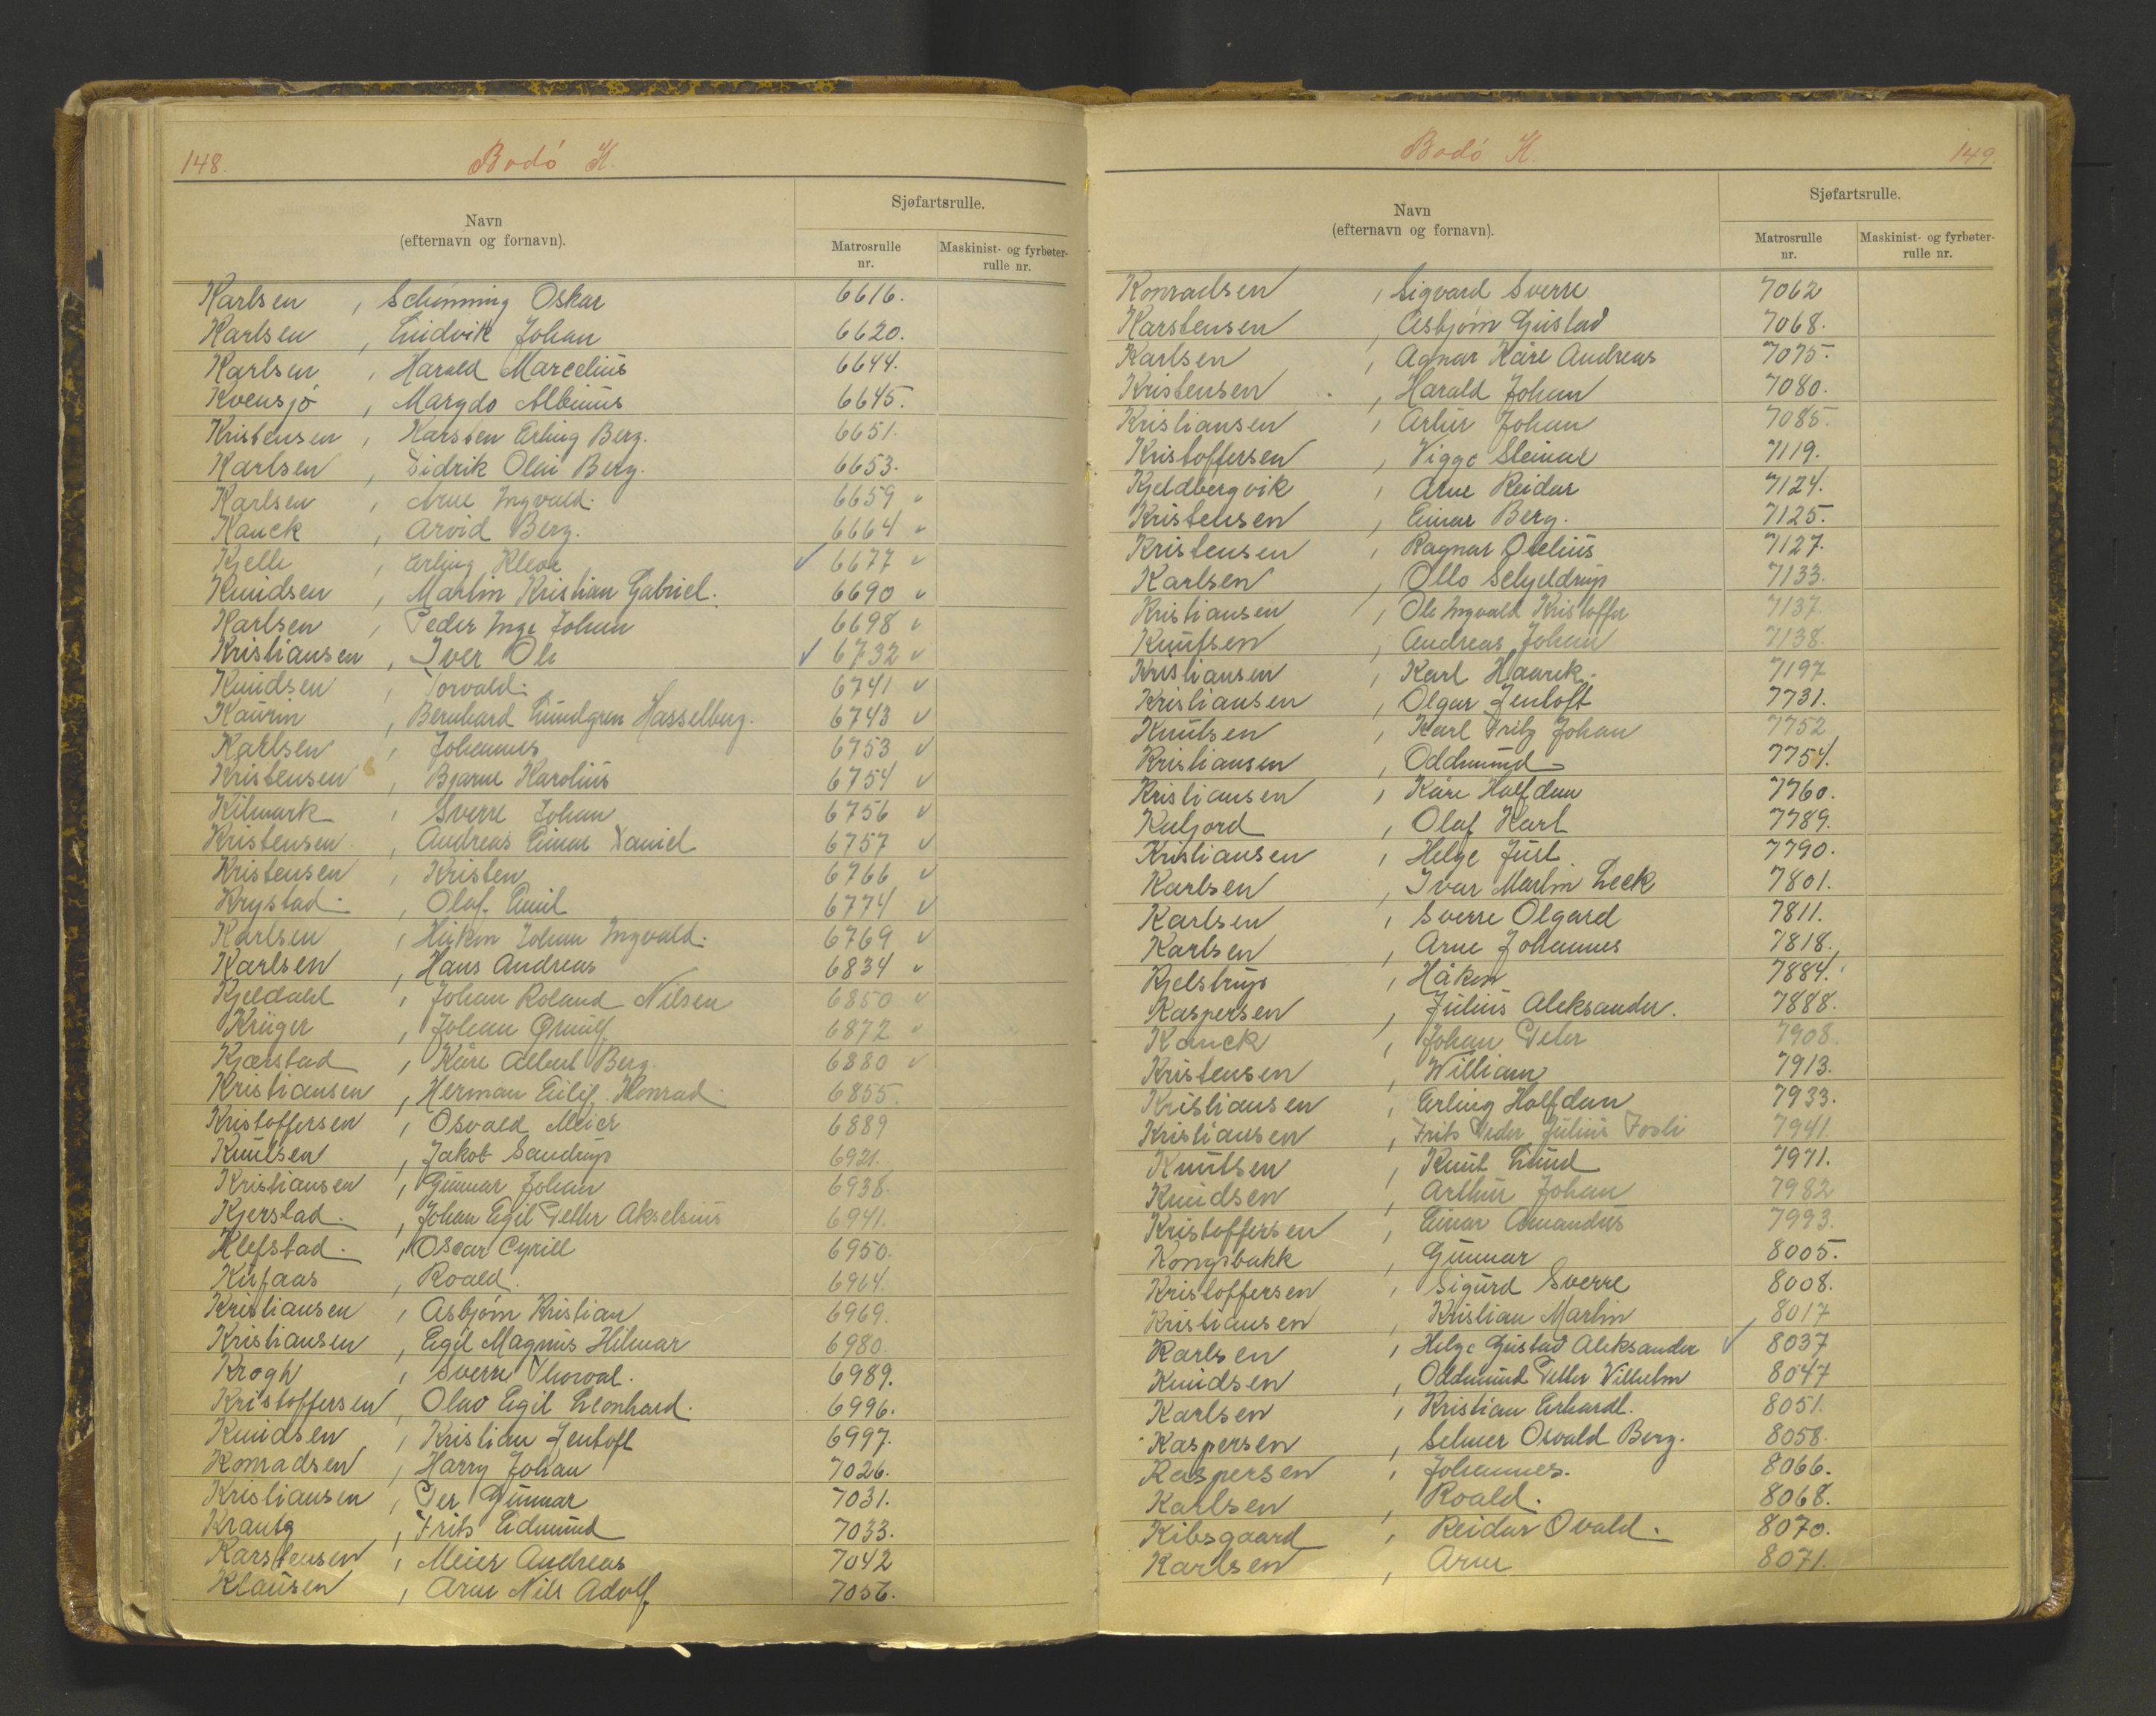 148.
Bodó K.
Navn
(efternavn og fornavn).
Sjøfartsrulle.
Matrosrulle
nr.
Maskinist- og fyrbøter-
rulle nr.
Karlsen , Schønning Oskar 6616.
Karlsen , Ludvik Johan 6620.
Karlsen , Harald Marcelius 6644.
Kvensjó , Margdo Albinus 6645.
Kristensen , Karsten Erling Berg. 6651.
Karlsen , Didrik Olai Berg. 6653.
Karlsen , Arne Ingvald. 6659
Kanck , Arvid Berg. 6664
Kjelle , Erling Kleve 6677
Knudsen , Martin Kristian Gabriel. 6690
Karlsen , Peder Inge Johan 6698
Kristiansen , Iver Ole 6732
Knudsen , Torvald. 6741
Kaurin , Bernhard Lundgren Hasselberg. 6743
Karlsen , Johannes 6753
Kristensen , Bjarne Karolius 6754
Kilmark , Sverre Johan 6756
Kristensen , Andreas Einar Daniel 6757
Kristensen , Kristen 6766
Krystad , Olaf Emil 6774
Karlsen , Håkon Johan Ingvald. 6769
Karlsen , Hans Andreas 6834
Kjeldahl , Johan Roland Nilsen 6850
Krüger , Johan Ørnulf 6872
Kjærstad , Kåre Albert Berg. 6880
Kristiansen , Herman Eilif Konrad. 6855.
Kristoffersen , Osvald Meier 6889
Knutsen , Jakob Sandrup 6921.
Kristiansen , Gunnar Johan 6938.
Kjerstad. , Johan Egil Petter Akselsius 6941.
Klefstad. , Oscar Cyrill 6950.
Kufaas , Roald. 6964.
Kristiansen , Asbjørn Kristian 6969.
Kristiansen , Egil Magnus Hilmar 6980.
Krogh , Sverre Thorval. 6989.
Kristoffersen , Olav Egil Leonhard. 6996.
Knudsen , Kristian Jentoft 6997.
Konradsen , Harry Johan 7026.
Kristiansen , Per Gunnar 7031.
Krantz , Frits Edmund 7033.
Karstensen , Meier Andreas 7042
Klausen , Arne Nils Adolf 7056.
Bodó K.
149.
Navn
(efternavn og fornavn).
Sjøfartsrulle.
Matrosrulle
nr.
Maskinist- og fyrbøter-
rulle nr.
Konradsen , Sigvard Sverre 7062
Karstensen , Asbjørn Gustav 7068.
Karlsen , Agnar Kåre Andreas 7075.
Kristensen , Harald Johan 7080.
Kristiansen , Artur Johan 7085.
Kristoffersen , Viggo Steinar 7119.
Kjeldbergvik , Arne Reidar 7124.
Kristensen , Einar Berg. 7125.
Kristensen , Ragnar Otelius 7127.
Karlsen , Otto Selyeldrup 7133.
Kristiansen , Ole Ingvald Kristoffer 7137.
Knutsen , Andreas Johan 7138.
Kristiansen , Karl Haarek. 7197
Kristiansen , Olgar Jentoft 7731.
Knutsen , Karl Fritz Johan 7752
Kristiansen , Oddmund 7754.
Kristiansen , Kåre Halfdan 7760.
Kaljord , Olaf Karl 7789.
Kristiansen , Helge Just. 7790.
Karlsen , Ivar Martin Leek 7801.
Karlsen , Sverre Olgard 7811.
Karlsen , Arne Johannes 7818.
Kjelstrup , Håkon 7884.
Kaspersen , Julius Aleksander. 7888.
Kanck , Johan Peter 7908.
Kristensen , William 7913.
Kristiansen , Erling Halfdan 7933.
Kristiansen , Frits Peder Julius Tosli 7941.
Knutsen , Knut Lund 7971.
Knudsen , Arthur Johan 7982
Kristoffersen , Einar Amandus 7993.
Kongsbakk , Gunnar 8005.
Kristoffersen , Sigurd Sverre 8008.
Kristiansen , Kristian Martin 8017
Karlsen , Helge Gustav Aleksander 8037
Knudsen , Oddmund Petter Vilhelm 8047
Karlsen , Kristian Erhardt. 8051.
Kaspersen , Selmer Osvald Berg. 8058.
Kaspersen , Johannes. 8066.
Karlsen , Roald. 8068.
Kibsgaard , Reidar Ovald. 8070.
Karlsen , Arne 8071.